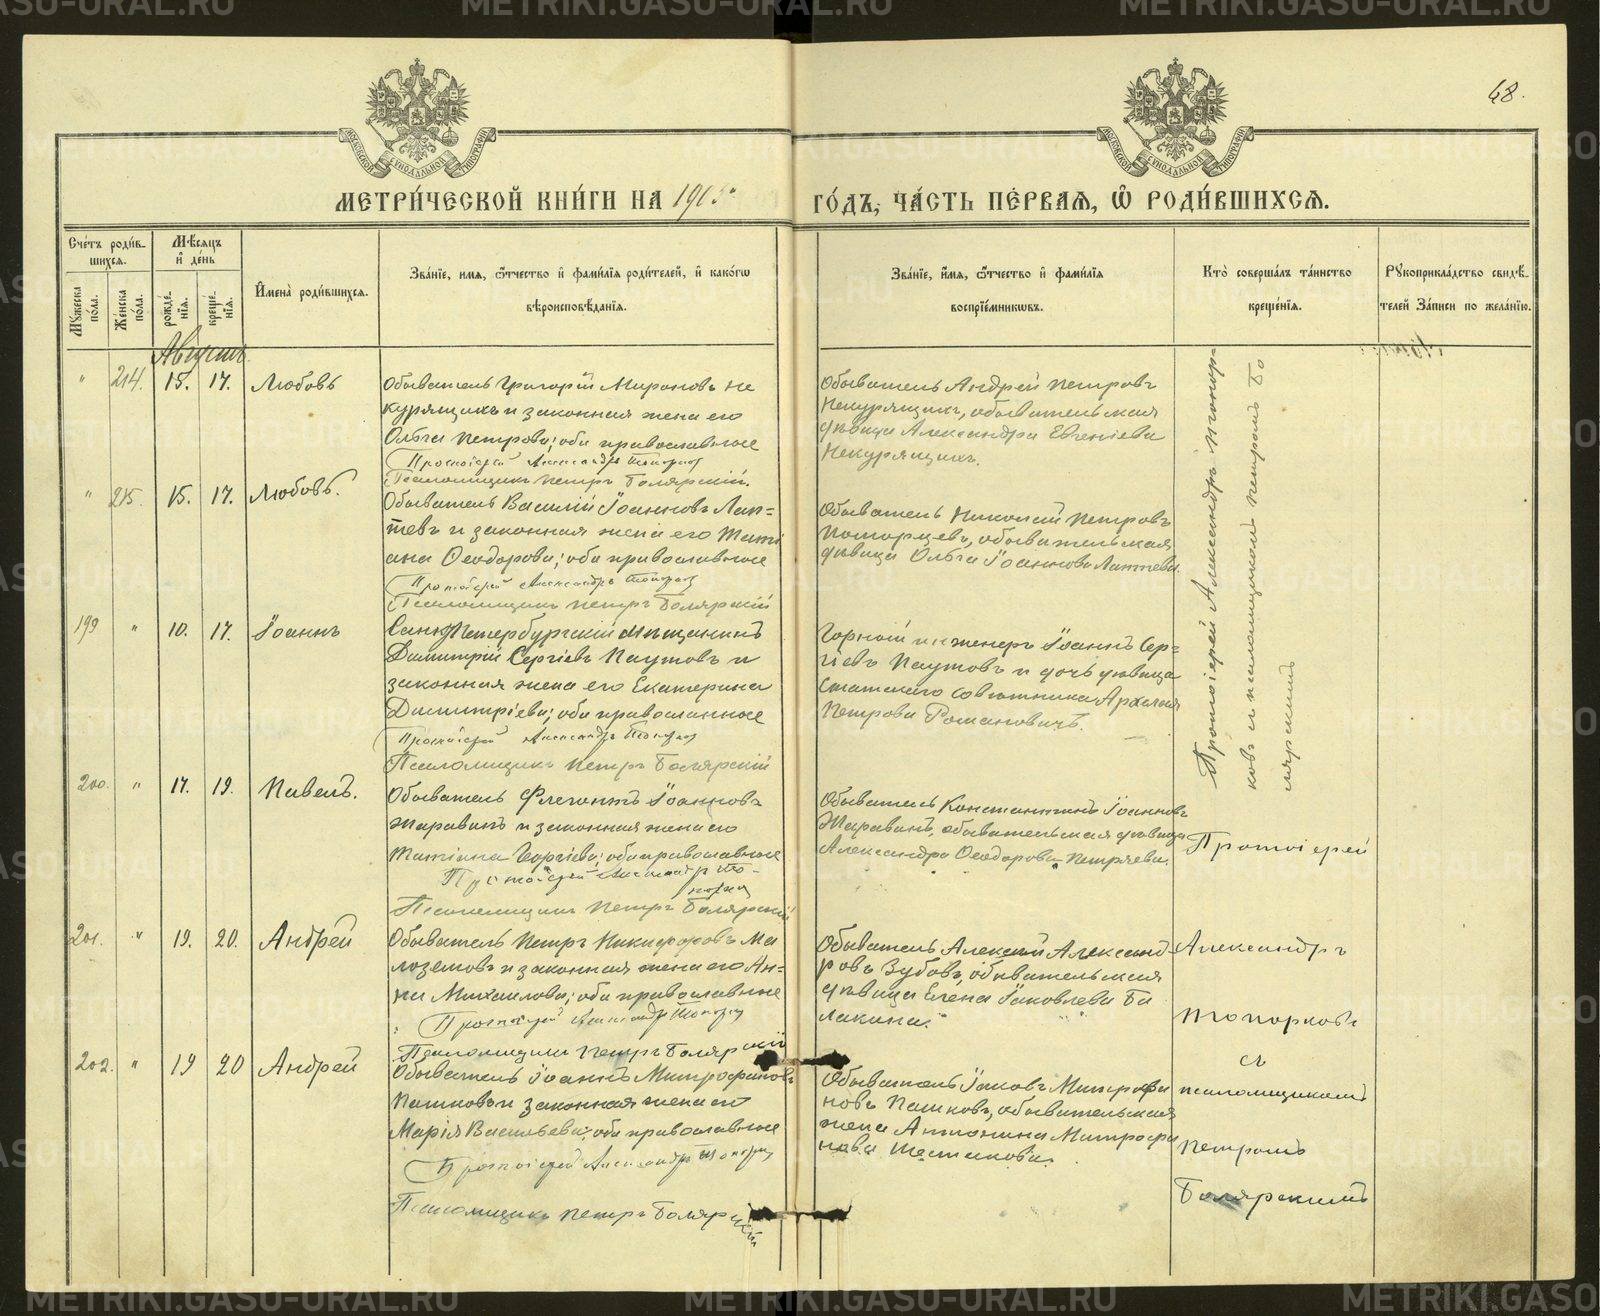 METRIKI.GASO-URAL.RU
48.
МЕТРИ́ЧЕСКОЙ КНИ́ГИ НА 1905 ГО́ДЪ, ЧА́СТЬ ПЕ́РВАЯ, Ѿ РОДИ́ВШИХСЯ.
Сче́тъ роди́в-
шихся.
Мѣ́сяцъ
и҆ де́нь
Мꙋ́жеска
по́ла.
Же́нска
по́ла.
рожде́-
нїя.
креще́-
нїя.
И҆мена̀ роди́вшихся.
Зва́нїе, имя, ѻ҆́тчество и҆ фами́лїя роди́телей, и҆ како́гѡ
вѣроисповѣ́данїя.
Зва́нїе, и҆́мя, ѻ҆́тчество и҆ фами́лїя
воспрїе́мникѡвъ.
Кто̀ соверша́лъ та́инство
креще́нїя.
Рꙋкоприкла́дство свидѣ́-
телей За́писи по жела́нїю.
Августъ.
" 214. 15. 17. Любовь
Обыватель Григорій Мироновъ Не
курящихъ и законная жена его
Ольга Петрова; оба православные
Протоіерей Александръ Топорков
Псаломщикъ Петръ Болярскій.
Обыватель Андрей Петровъ
Некурящихъ, обывательская
дѣвица Александра Евгеніева
Некурящихъ.
" 215. 15. 17. Любовь.
Обыватель Василій Іоанновъ Лап=
тевъ и законная жена его Тати
ана Ѳеодорова; оба православные
Протоіерей Александръ Топорков
Псаломщикъ Петръ Болярскій
Обыватель Николай Петровъ
обывательская
дѣвица Ольга Іоаннова Лаптева.
199 " 10. 17. Іоаннъ
Санктпетербургскій мѣщанинъ
Димитрій Сергіевъ Паутовъ и
законная жена его Екатерина
Димитріева; оба православные
Протоіерей Александръ Топорков
Псаломщикъ Петръ Болярскій
Горный инженеръ Іоаннъ Сер=
гіевъ Паутовъ и дочь дѣвица
Статскаго Совѣтника
Петрова Романовичъ.
Протоіерей Александръ Топор-
ковъ и псаломщикомъ Петромъ Бо
лярскимъ
200. " 17. 19. Павелъ.
Обыватель Флегонтъ Іоанновъ
Жаравинъ и законная жена его
Татіана Георгіева; оба православные
Протоіерей Александръ То-
порков
Псаломщикъ Петръ Болярскій
Обыватель Константинъ Іоаннов
Жаравинъ, обывательская дѣвица
Александра Ѳеодорова Петряева.
201. " 19. 20. Андрей
Обыватель Петръ Никифоровъ Ма
лоземовъ и законная жена его Ан=
на Михаилова; оба православные
Протоіерей Александръ Топорков
Псаломщикъ Петръ Болярскій
Обыватель Алексій Александ
ровъ Зубовъ, обывательская
дѣвица Елена Іаковлева Ба
лакина.
202. " 19 20 Андрей
Обыватель Іоаннъ Митрофановъ
Пашковъ и законная жена его
Марія Васильева; оба православные
Протоіерей Александръ Топорков
Псаломщикъ Петръ Болярскій
Обыватель Іаковъ Митрофа
новъ Пашковъ, обывательская
жена Антонина Митрофа
нова Шестакова.
Протоіерей
Александръ
Топорковъ
съ
псаломщикомъ
Петромъ
Болярскимъ